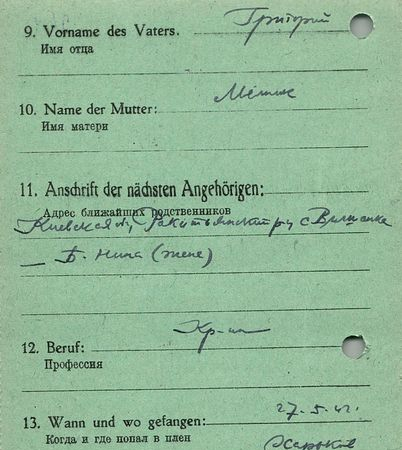 9. Vorname des Vaters. Григорий
Имя отца
10. Name der Mutter:
Имя матери
11. Anschrift der nächsten Angehörigen:
Адрес ближайших родственников
Киевская
Б. Нина (жене)
12. Beruf: Кр-ин
Профессия
13. Wann und wo gefangen: 27.5.42.
Когда и где попал в плен
Харьков